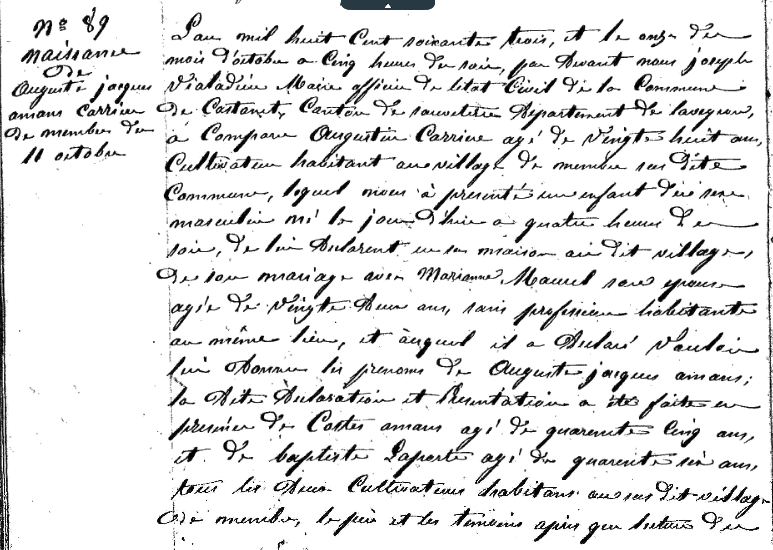 N° 89
naissance
de
Auguste jacques
amans Carrive
de membre du
11 octobre
L'an mil huit Cent soixante trois, et le onze du
mois d'octobre a Cinq heures du soir, par devant nous joseph
Maire officier de létat Civil de la Commune
de Castanet, Canton de sauveterre Département de laveyron,
à Comparu Augustin Carrive agé de Vingte huit ans,
Cultivateur habitant au village de membre sus dite
Commune, lequel nous à présenté un enfant du sexe
masculin né le jour d'hui a quatre heures du
soir, de lui déclarent en sa maison au dit village,
de son mariage avec Marianne Maurel son epouse
agée de Vingte deux ans, sans profession habitante
au même lieu, et auquel il a déclaré Vouloir
lui donner les prenoms de Auguste jacques amans;
la dite déclaration et Présentation a été faite en
présence de Costes amans agé de quarente Cinq ans,
et de baptiste Laporte agé de quarente six ans,
tous les deux Cultivateurs habitans au sus dit village
de membre, le père et les témoins après que lecture du